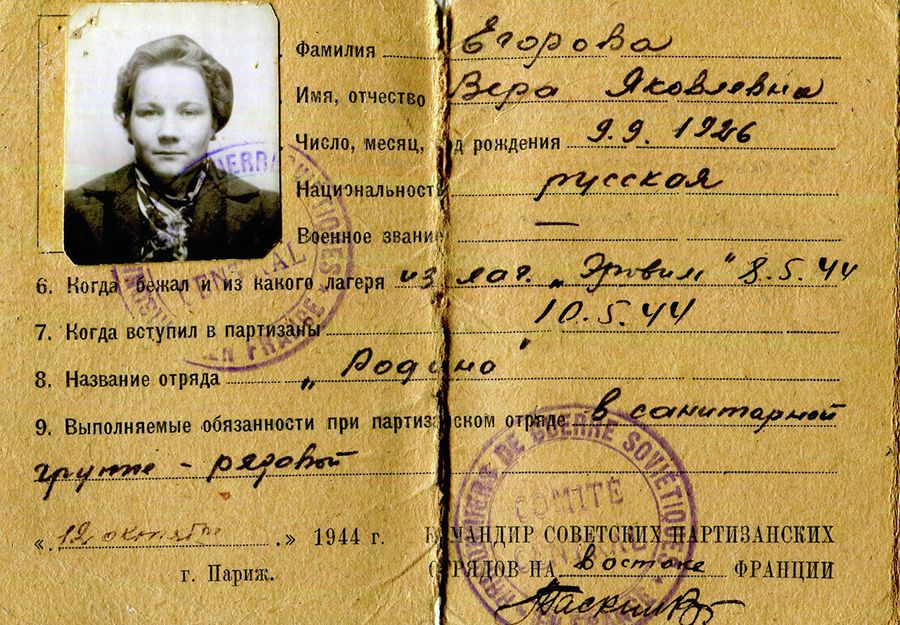 Фамилия Егорова
Имя, отчество Вера Яковлевна
Число, месяц, од рождения 9.9.1926
Национальност русская
Военное звани —
6. Когда бежал и из какого лагеря из лаг. „Эрувиль" 8.5.44
7. Когда вступил в партизаны 10.5.44
8. Название отряда „Родина"
9. Выполняемые обязанности при партизанском отряде в санитарной
группе - рядовой
«12 октября» 1944 г.
КОМАНДИР СОВЕТСКИХ ПАРТИЗАНСКИХ
г. Париж.
ОТРЯДОВ НА востоке ФРАНЦИИ
CENTRAL
EN FRANCE
DE GUERRE SOVIETIQUES
COMITÉ
CENTRAL